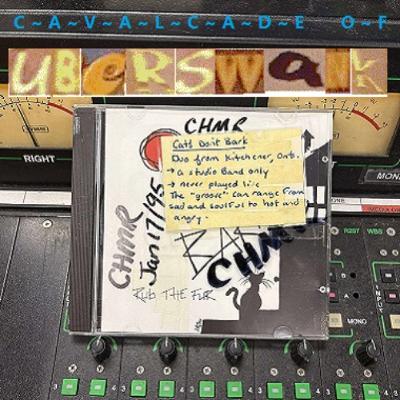 C~A~V~A~L~C~A~D~E O~F
UBERSWANK
RIGHT
CHMR
Cats Don't Bark
Duo from Kitchener, Ont.
→ a studio Band only
→ never played live
The "groove" can range from
sad and soulful to hot and
angry.
CHMR
Jan 17/95
BA
CHMR
RUB THE FUR
MONO
R297 WBS
INPUT
MONO
3 4 3 4 3 4 3 4 3 4